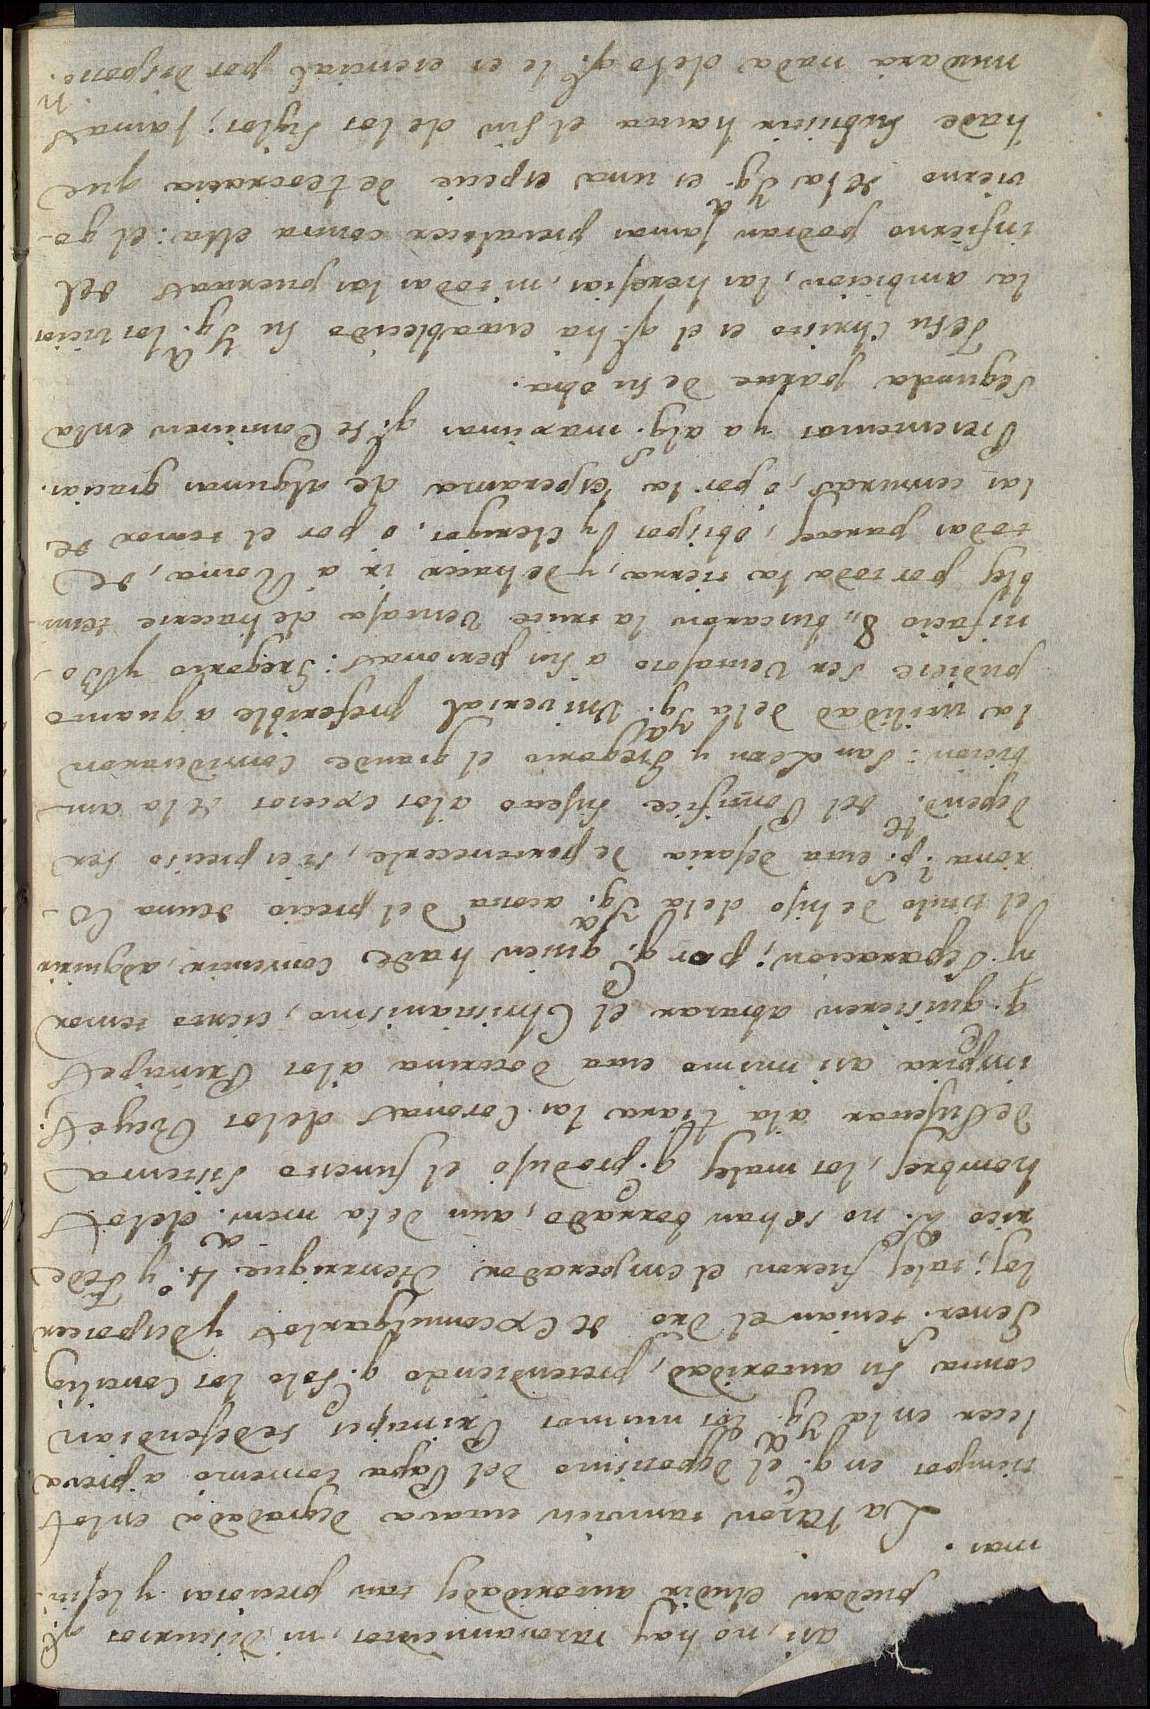 asi, no hay razonamientos, ni discursos q.e
puedan eludir autoridades tan precisas y lexiti-
mas.
La razon tamvien estava degradada en los
tiempos en q.e el depotismo del Papa comenzó a preva
lecer en la Yg.a los mismos Principes se defendian
contra su autoridad, pretendiendo q.e solo los Concilios
Gener.s tenian el dro de Excomulgarlos y desposeer
los; tales fueron el emperador Henrrique 4.o y Fede
rico 2.o no se han borrado, aun de la mem.a de los
hombres, los males q.e produjo el funesto sistema
de sujetar a la tiara las Coronas de los Reyes:
inspira asi mismo esta doctrina a los Principes
q.e quisieren abrazar el Christianismo, cierto temor
y separacion; por q.e quien hade consentir, adquirir
el titulo de hijo de la Yg.a acosta del precio de una Co-
rona? p.s esta dejaria de pertenecerle, si es preciso ser
depend.te del Pontifice sujeto a los excesos de la am-
bicion: San Leon y Gregorio el grande considuraron
la utilidad de la Yg.a Universal preferible a quanto
pudiese ser ventajoso a sus personas: Gregorio y Bo-
nifacio 8.o buscaron la triste ventaja de hacerse temi-
bles por toda la tierra, y de hacer ir a Roma, de
todas partes, obispos y clerigos, o por el temor de
las censuras, o por la esperanza de algunas gracias.
Presentemos ya alg.s maximas q.e se Contienen en la
segunda parte de su obra.
Jesu Christo es el q.e ha establecido su Yg.a los vicios
la ambicion, las herejias, ni todas las puertas del
infierno podran jamas prevalecer contra ella: el go-
vierno de la Yg.a es una especie de teocracia que
hade subsistir hasta el fin de los siglos; jamas
mudara nada de lo q.e le es esencial por disposic.n